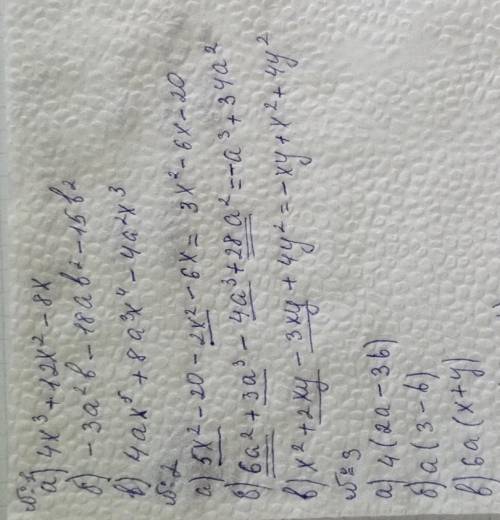 №1
а) 4x³+12x²-8x
б) -3a²b-18ab²-15b²
в) 4ax⁵+8a³x⁴-4a²x³
№2
а) 5x²-20-2x²-6x=3x²-6x-20
б) 6a²+3a³-4a³+28a²=-a³+34a²
в) x²+2xy-3xy+4y²=-xy+x²+4y²
№3
а) 4(2a-3b)
б) a(3-b)
в) 6a(x+y)